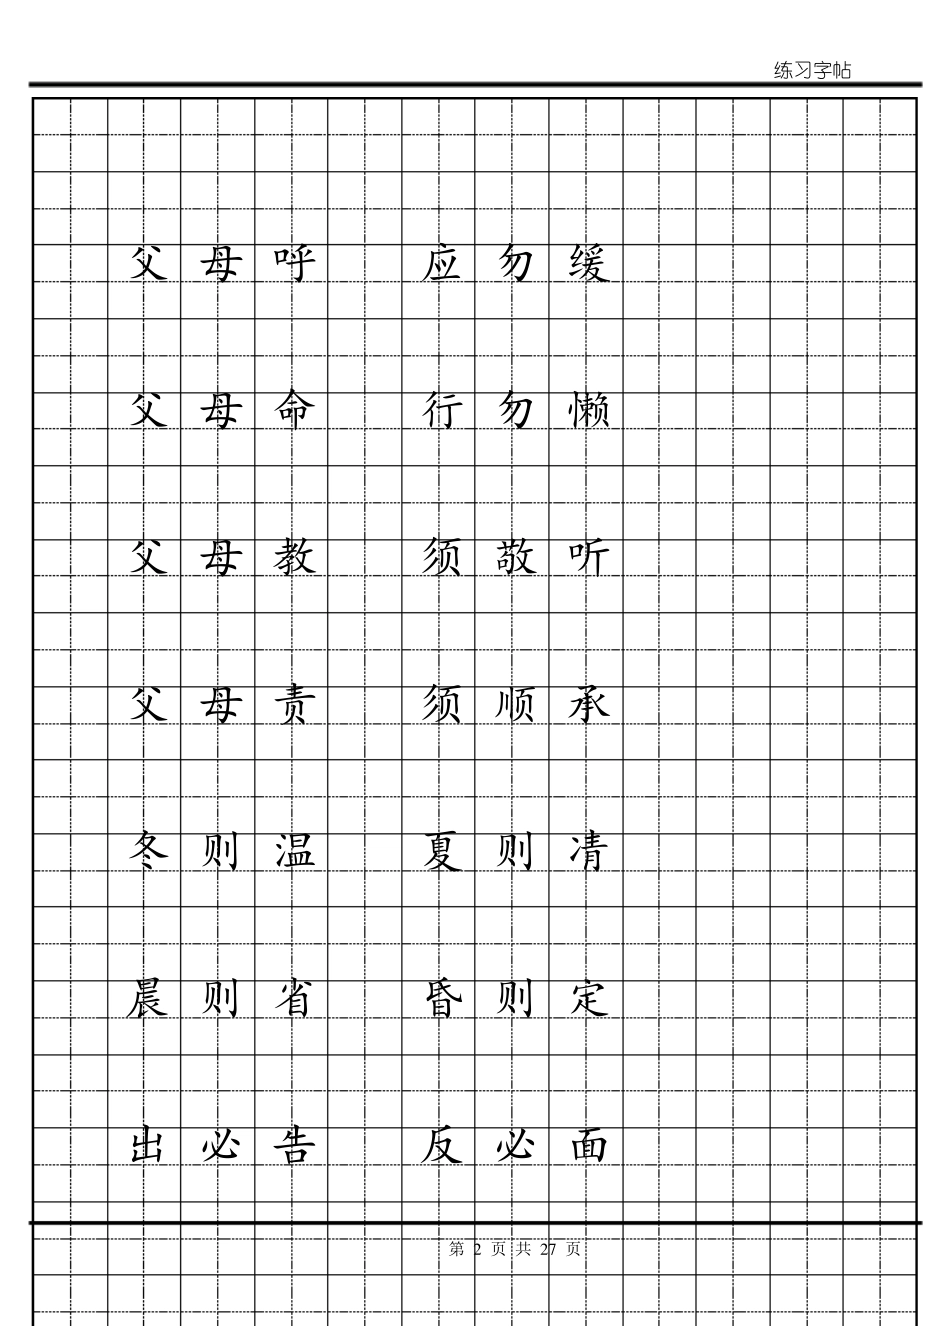 练习字帖
父母呼 应勿缓
父母命 行勿懒
父母教 须敬听
父母责 须顺承
冬则温 夏则凊
晨则省 昏则定
出必告 反必面
第 2 页 共 27 页